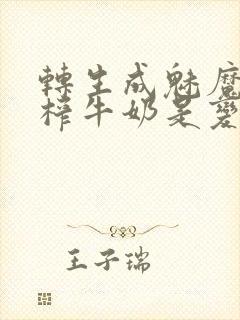 轉生成魅魔
榨牛奶是變
王子瑞